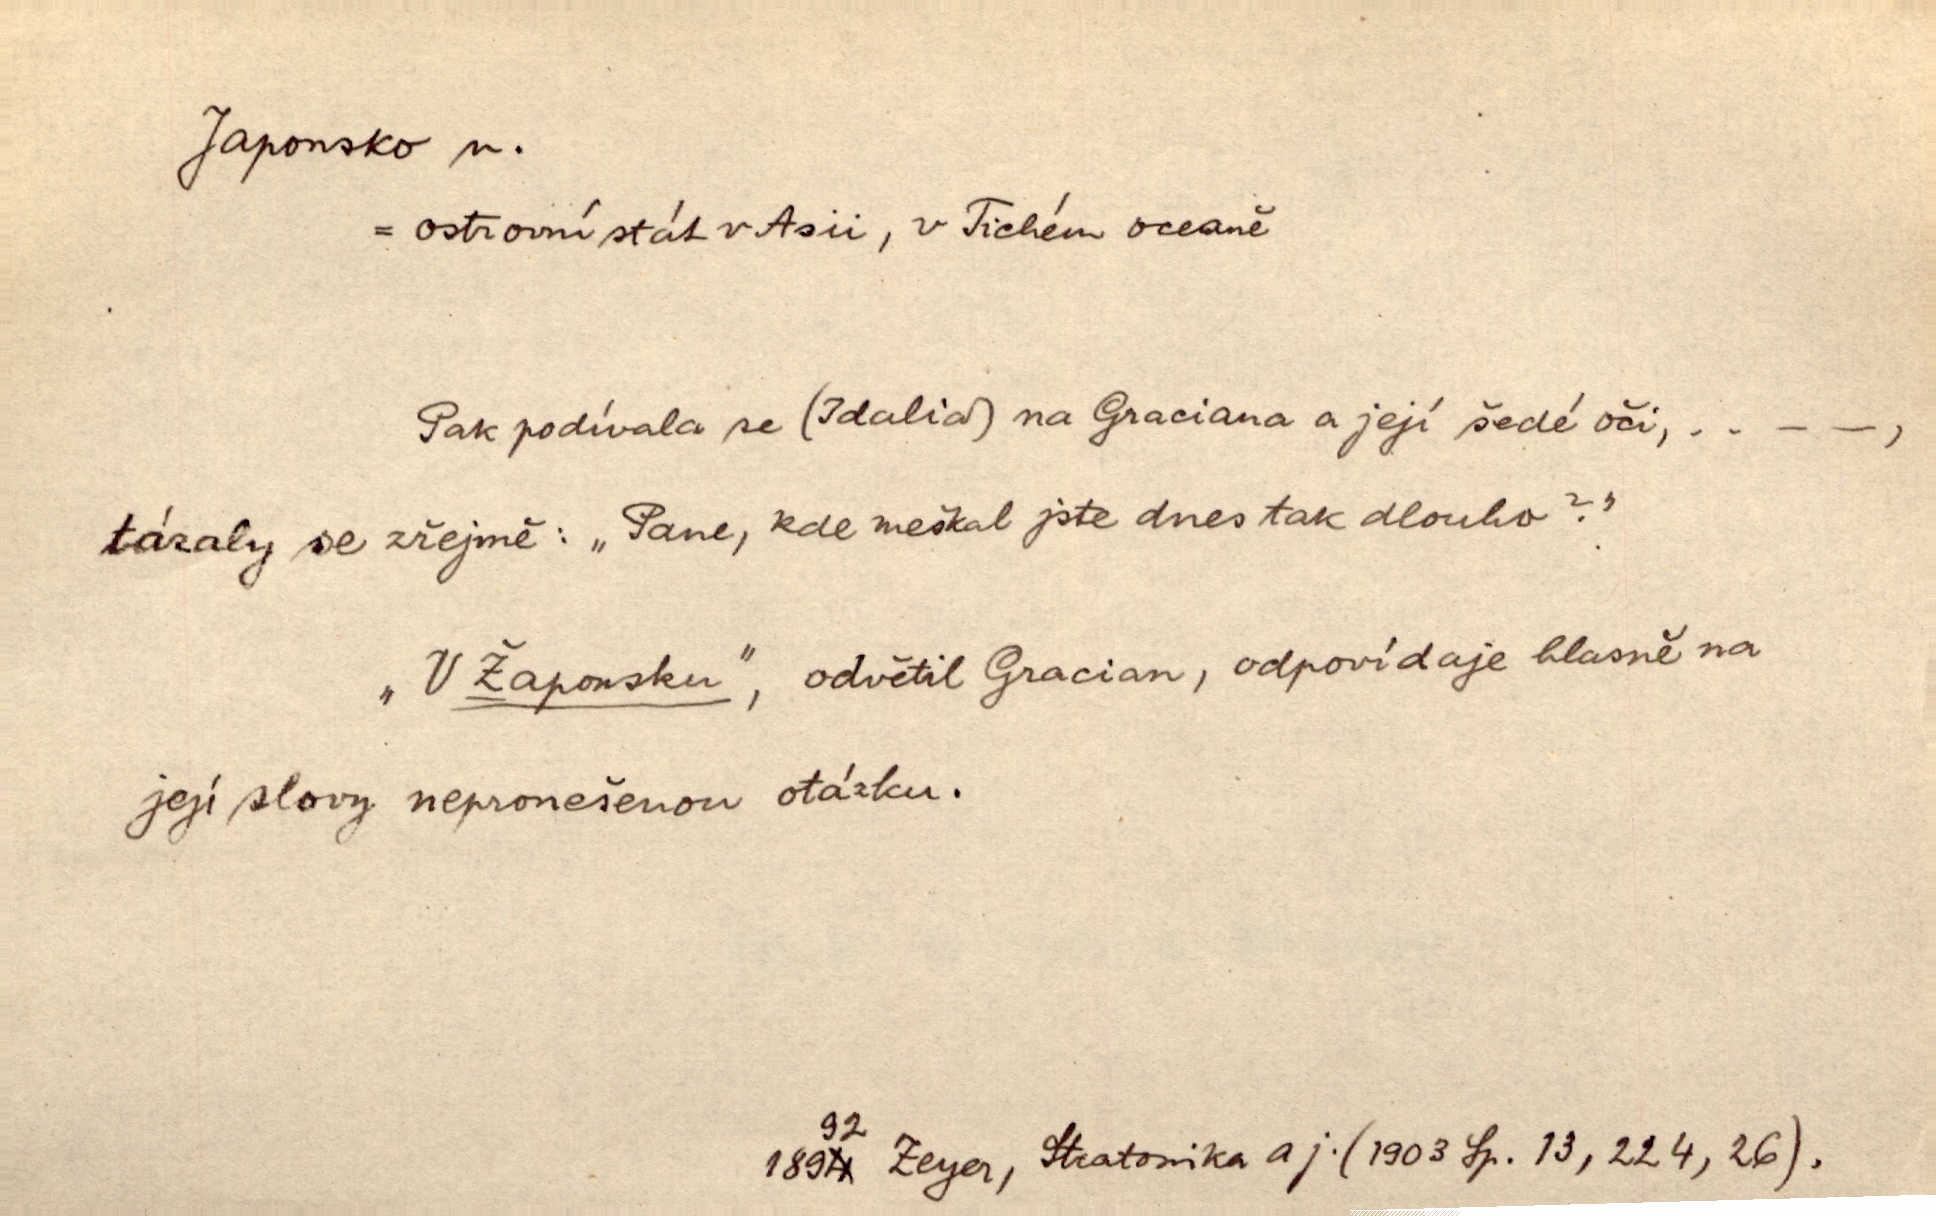 Japonsko n.
= ostrovní stát v Asii, v Tichém oceaně
Pak podívala se (Idalia) na Graciana a její šedé oči, . . – –,
tázaly se zřejmě: „Pane, kde meškal jste dnes tak dlouho?"
„V Žaponsku", odvětil Gracian, odpovídaje hlasně na
její slovy nepronešenou otázku.
92
189 Zeyer, Stratonika a j. (1903 Sp. 13, 224, 26).